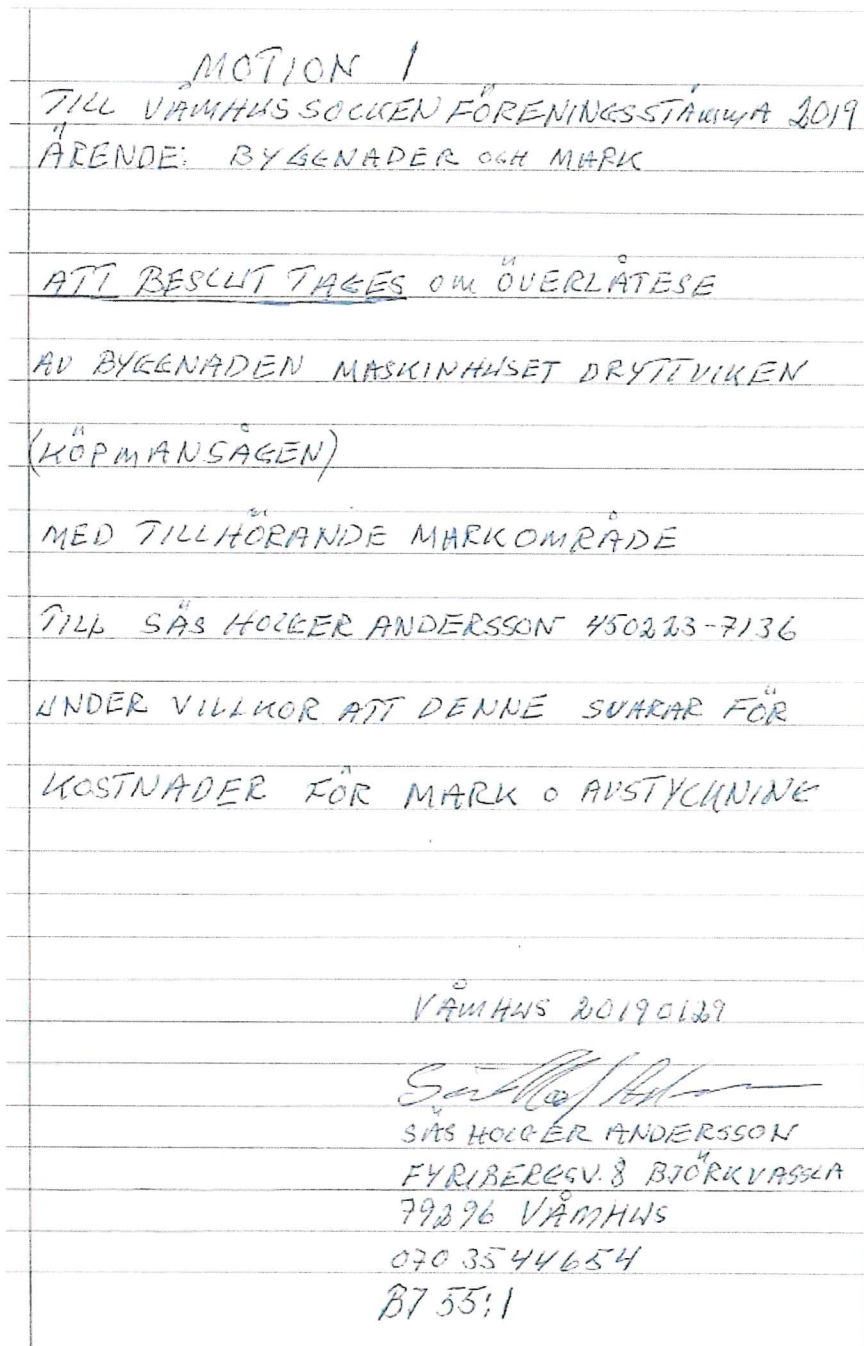 MOTION 1
TILL VÅMHUS SOCKEN FÖRENINGSSTÄMMA 2019
ÄRENDE: BYGGNADER OCH MARK
ATT BESLUT TAGES OM ÖVERLÅTESE
AV BYGGNADEN MASKINHUSET DRYTTVIKEN
(KÖPMANSÅGEN)
MED TILLHÖRANDE MARKOMRÅDE
TILL SÄS HOLGER ANDERSSON 450223-7136
UNDER VILLKOR ATT DENNE SVARAR FÖR
KOSTNADER FÖR MARK O AVSTYCKNING
VÅMHUS 20190129
SÄS HOLGER ANDERSSON
FYRIBERGSV. 8 BJÖRKVASSLA
79296 VÅMHUS
070 35 44654
B7 55:1